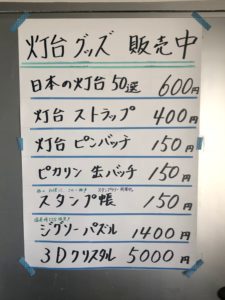 灯台グッズ 販売中
日本の灯台50選 600円
灯台 ストラップ 400円
灯台 ピンバッチ 150円
ピカリン 缶バッチ 150円
スタンプ帳 150円
ジグソーパズル 1400円
3Dクリスタル 5000円